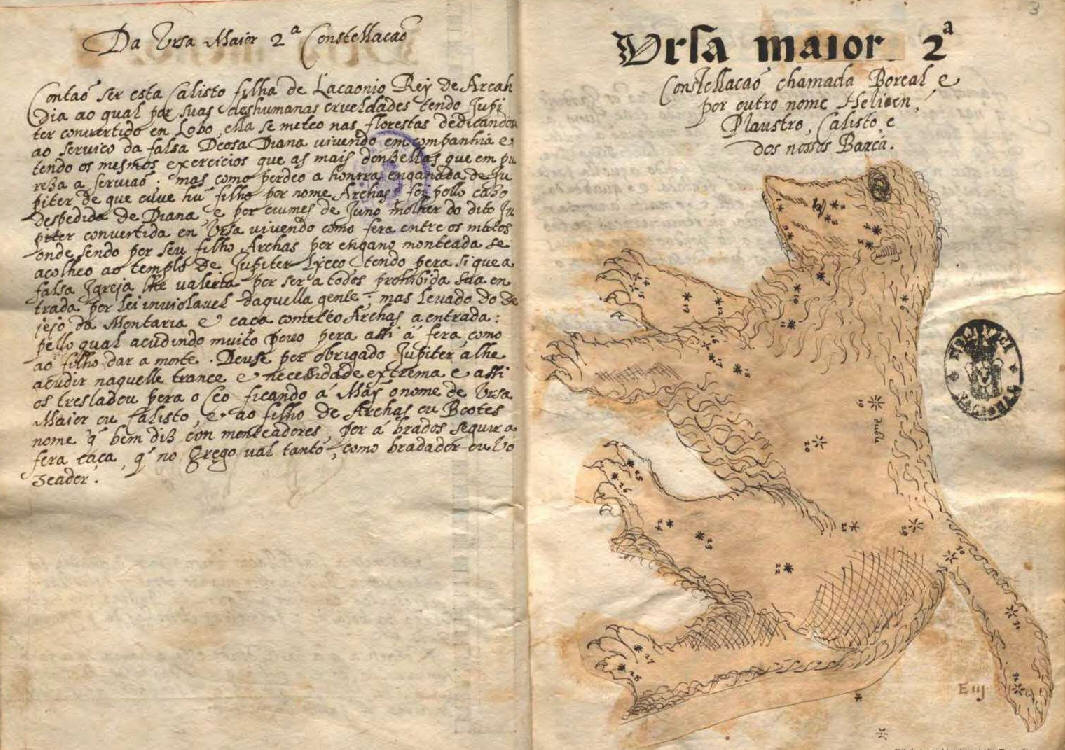 Da Ursa Maior 2ª Constellacaõ
Contaõ ser esta Calisto filha de Lacaonio Rey de Arcah
dia ao qual por suas deshumanas crueldades tendo Jupi
ter convertido en Lobo, ella se meteo nas florestas dedicandose
ao serviço da falsa Deosa Diana vivendo em companhia e
tendo os mesmos exercicios que as mais donzellas que em pu
reza a serviaõ, mas como perdeo a honrra enganada de Ju
piter de que ouve hũ filho por nome Archas, foi pollo caso
despedida de Diana e por ciumes de Juno molher do dito Ju
piter convertida en Ursa vivendo como fera entre os matos
onde sendo por seu filho Archas por engano monteada se
acolheo ao templo de Jupiter Lyceo tendo pera si que a
falsa Igreja lhe valeria por ser a todos prohibida sua en
trada por lei inviolavel daquella gente; mas levado do de
jejo da Montaria e caça cometeo Archas a entrada;
pello qual acudindo muito povo pera assi á fera como
ao filho dar a morte. Deuse por obrigado Jupiter a lhe
acudir naquelle trance e necessidade extrema e assi
os tresladou pera o Ceo ficando á Maỹ o nome de Ursa
Maior ou Calisto, e ao filho de Archas ou Bootes
nome q̃ bem diz con monteadores, por á brados seguir a
fera caça, q̃ no grego val tanto, como bradador ou Vo
zeador.
3
Ursa maior 2ª
Constellacaõ chamada Boreal e
por outro nome Helicen,
Plaustro, Calisto e
dos nossos Barca.
E iij